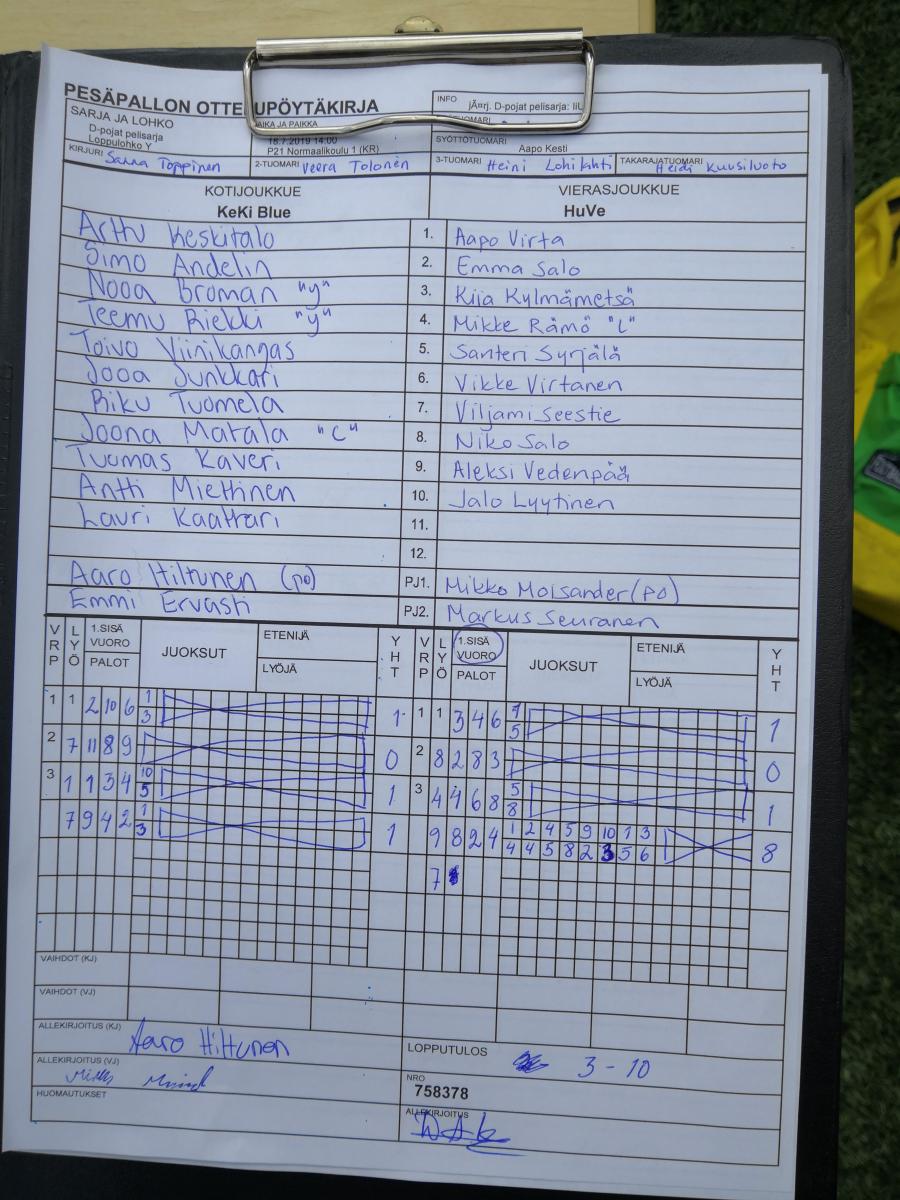 PESÄPALLON OTTELUPÖYTÄKIRJA
INFO
jÃ¤rj. D-pojat pelisarja: liU
SARJA JA LOHKO
D-pojat pelisarja
Loppulohko Y
AIKA JA PAIKKA
18.7.2019 14:00
P21 Normaalikoulu 1 (KR)
SYÖTTÖTUOMARI
Aapo Kesti
KIRJURI Sanna Toppinen
2-TUOMARI Veera Tolonen
3-TUOMARI Heini Lohilahti
TAKARAJATUOMARI Heidi Kuusiluoto
KOTIJOUKKUE
KeKi Blue
VIERASJOUKKUE
HuVe
Arttu Keskitalo 1. Aapo Virta
Simo Andelin 2. Emma Salo
Nooa Broman "y" 3. Kiia Kylmämetsä
Teemu Riekki "y" 4. Mikke Rämö "L"
Toivo Viinikangas 5. Santeri Syrjälä
Jooa Junkkari 6. Vikke Virtanen
Riku Tuomela 7. Viljami Seestie
Joona Matala "C" 8. Niko Salo
Tuomas Kaveri 9. Aleksi Vedenpää
Antti Miettinen 10. Jalo Lyytinen
Lauri Kaattari 11.
12.
Aaro Hiltunen (po) PJ1. Mikko Moisander (po)
Emmi Ervasti PJ2. Markus Seuranen
VRP LYÖ 1.SISÄ VUORO PALOT JUOKSUT ETENIJÄ LYÖJÄ YHT VRP LYÖ 1.SISÄ VUORO PALOT JUOKSUT ETENIJÄ LYÖJÄ YHT
1 1 2 10 6 1 3 1 1 1 3 4 6 5 1
2 7 11 8 9 0 2 8 2 8 3 0
3 1 1 3 4 10 5 1 3 4 4 6 8 5 8 1
7 9 4 2 1 3 1 9 8 2 4 1 2 4 5 9 10 1 3 8
4 4 5 8 2 3 5 6
7
VAIHDOT (KJ)
VAIHDOT (VJ)
ALLEKIRJOITUS (KJ) Aaro Hiltunen
LOPPUTULOS 3 - 10
ALLEKIRJOITUS (VJ)
NRO
758378
HUOMAUTUKSET
ALLEKIRJOITUS